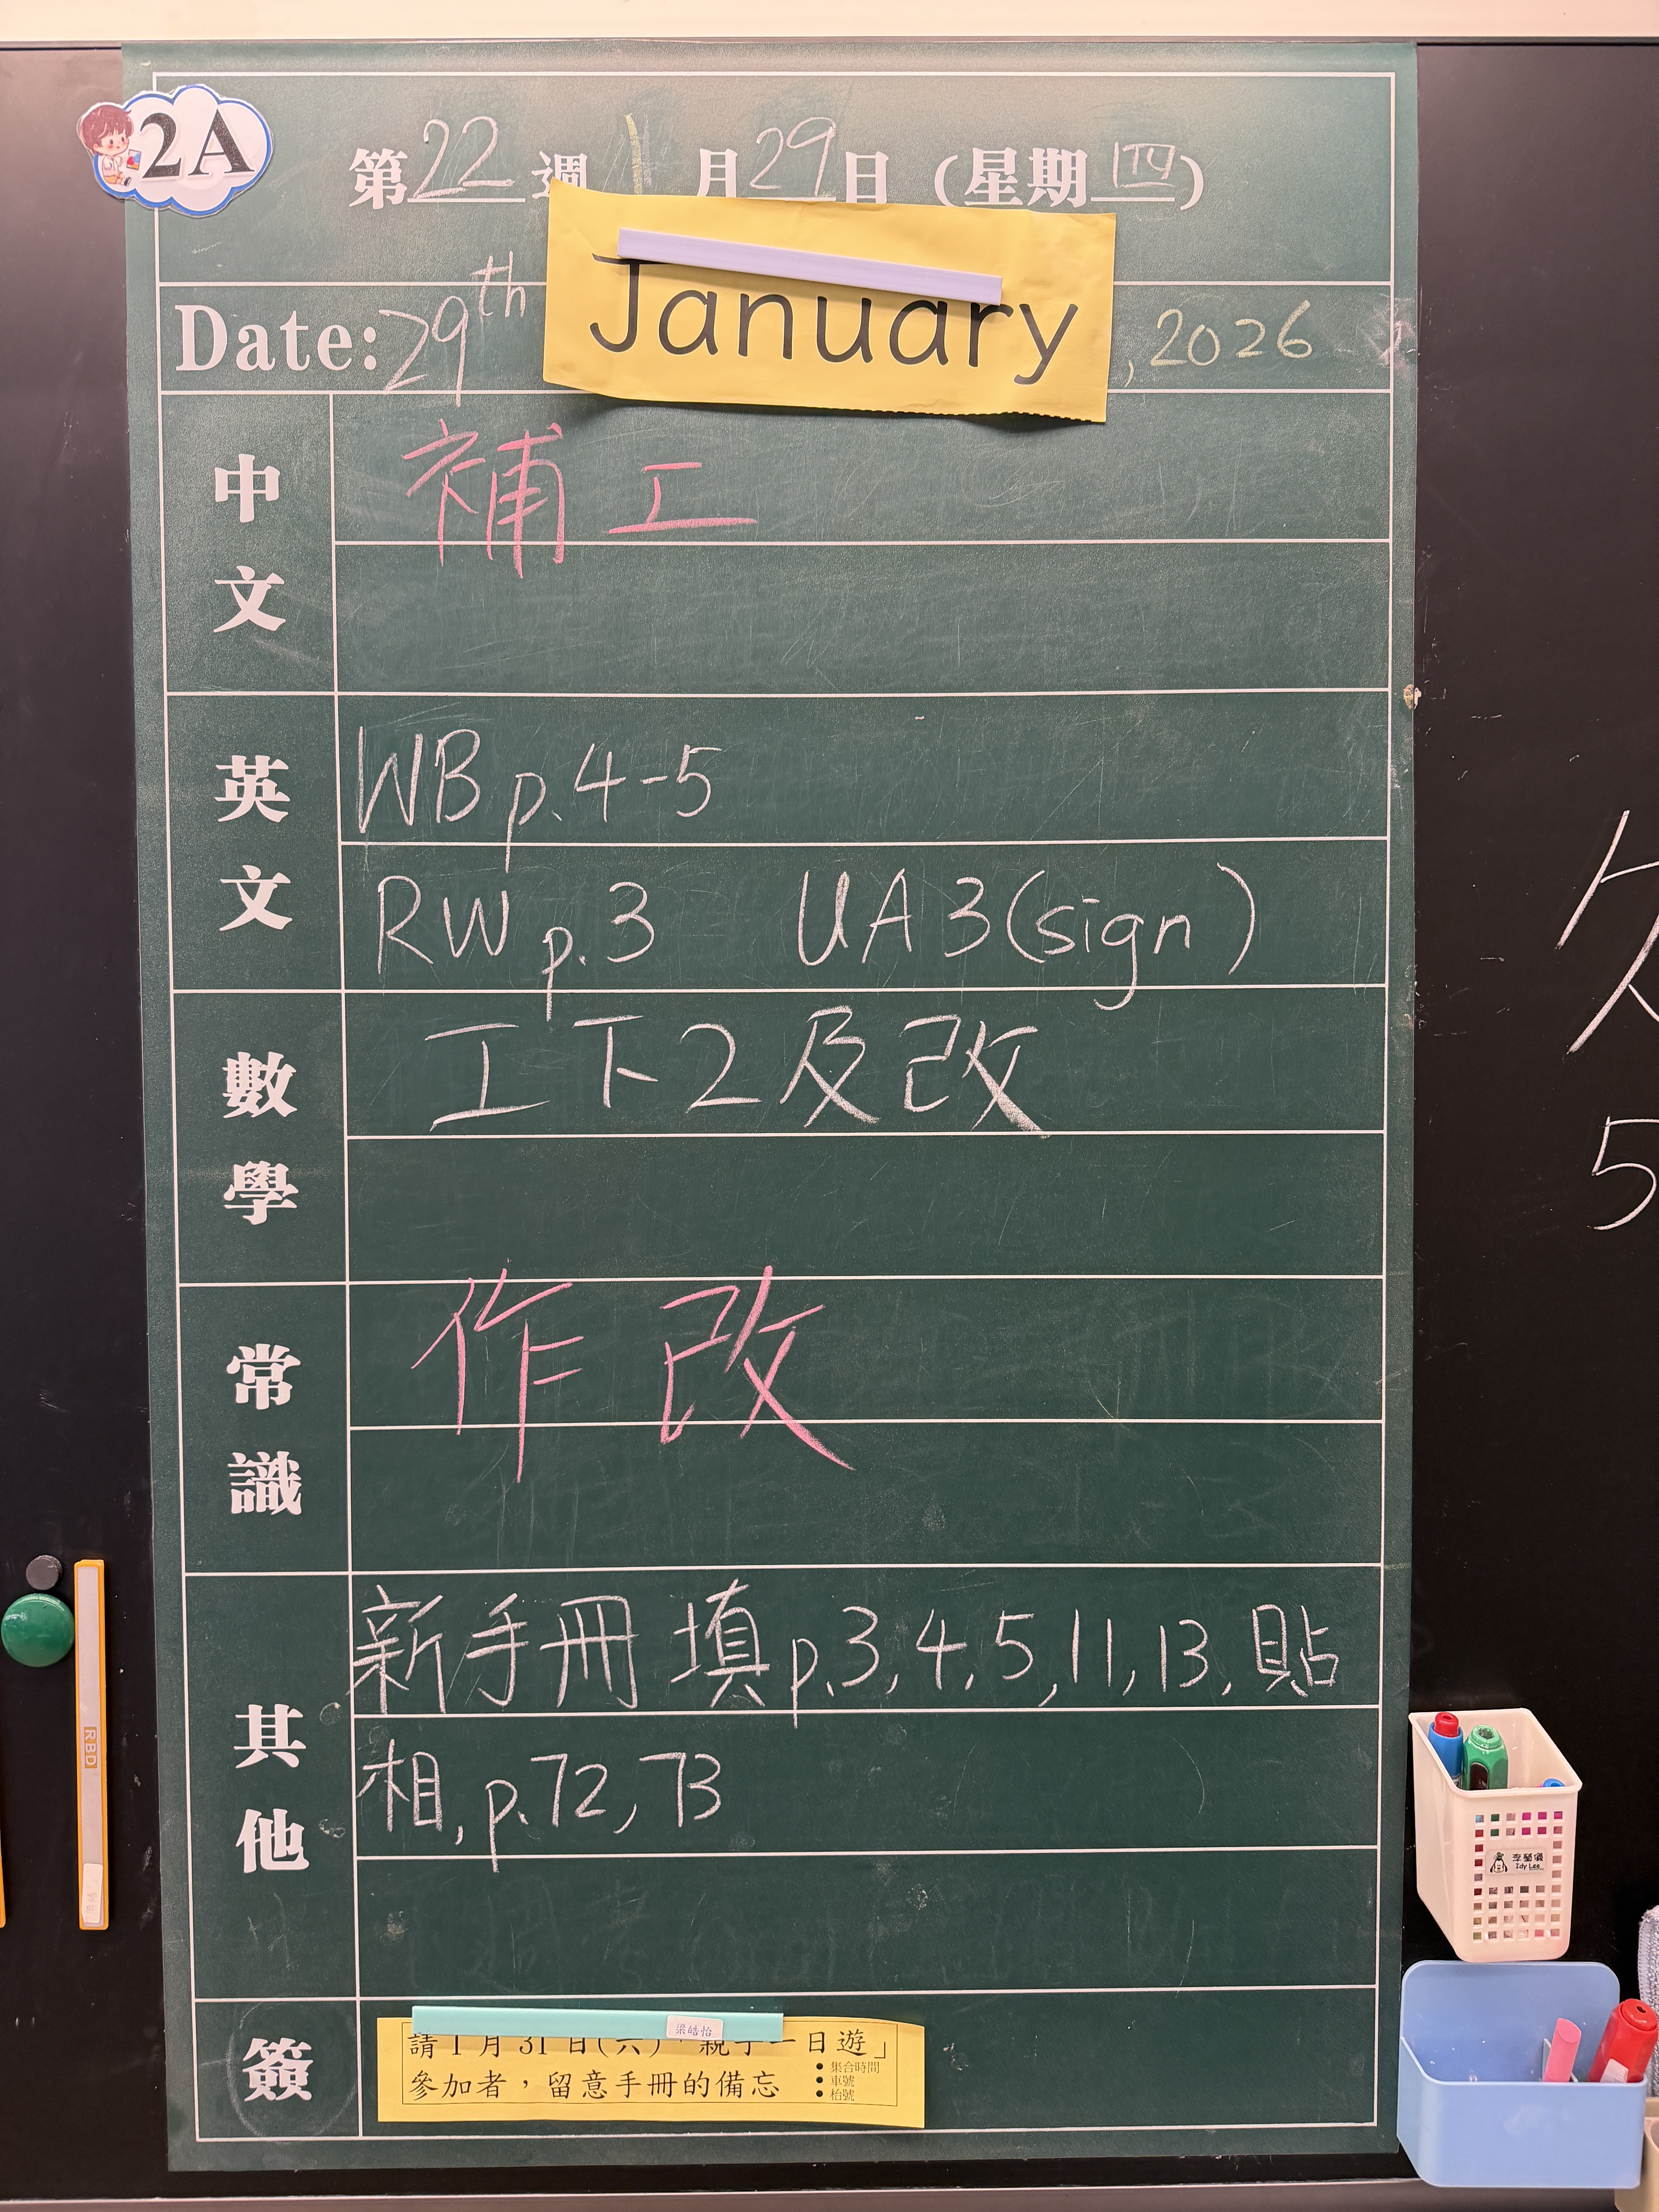 2A
第22週 1月29日 (星期四)
Date: 29th January, 2026
中文
補工
英文
WB p.4-5
RW p.3 UA3(sign)
數學
工下2及改
常識
作改
其他
新手冊 填p.3,4,5,11,13,貼
相,p.72,73
簽
梁皓怡
請1月31日(六)「親子一日遊」
參加者，留意手冊的備忘
● 集合時間
● 車號
● 枱號
5
RBD
李瑩儀
Idy Lee